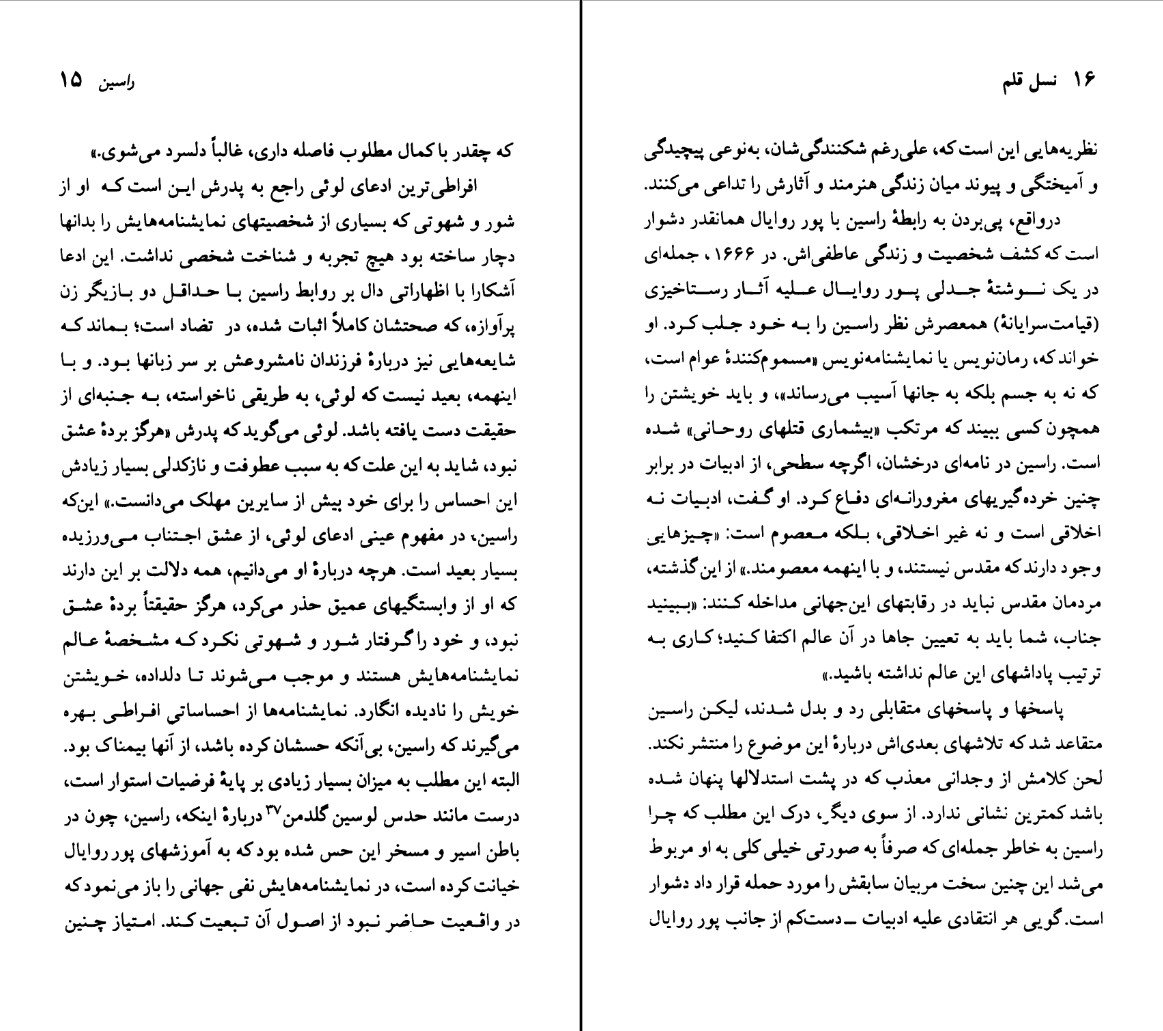 راسین ۱۵
که چقدر با کمال مطلوب فاصله داری، غالباً دلسرد می‌شوی.»
افراطی‌ترین ادعای لوئی راجع به پدرش این است که او از
شور و شهوتی که بسیاری از شخصیتهای نمایشنامه‌هایش را بدانها
دچار ساخته بود هیچ تجربه و شناخت شخصی نداشت. این ادعا
آشکارا با اظهاراتی دال بر روابط راسین با حداقل دو بازیگر زن
پرآوازه، که صحتشان کاملاً اثبات شده، در تضاد است؛ بماند که
شایعه‌هایی نیز دربارهٔ فرزندان نامشروعش بر سر زبانها بود. و با
اینهمه، بعید نیست که لوئی، به طریقی ناخواسته، به جنبه‌ای از
حقیقت دست یافته باشد. لوئی می‌گوید که پدرش «هرگز بردهٔ عشق
نبود، شاید به این علت که به سبب عطوفت و نازکدلی بسیار زیادش
این احساس را برای خود بیش از سایرین مهلک می‌دانست.» این‌که
راسین، در مفهوم عینی ادعای لوئی، از عشق اجتناب می‌ورزیده
بسیار بعید است. هرچه دربارهٔ او می‌دانیم، همه دلالت بر این دارند
که او از وابستگیهای عمیق حذر می‌کرد، هرگز حقیقتاً بردهٔ عشق
نبود، و خود را گرفتار شور و شهوتی نکرد که مشخصهٔ عالم
نمایشنامه‌هایش هستند و موجب می‌شوند تا دلداده، خویشتن
خویش را نادیده انگارد. نمایشنامه‌ها از احساساتی افراطی بهره
می‌گیرند که راسین، بی‌آنکه حسشان کرده باشد، از آنها بیمناک بود.
البته این مطلب به میزان بسیار زیادی بر پایهٔ فرضیات استوار است،
درست مانند حدس لوسین گلدمن۳۷ دربارهٔ اینکه، راسین، چون در
باطن اسیر و مسخر این حس شده بود که به آموزشهای پور روایال
خیانت کرده است، در نمایشنامه‌هایش نفی جهانی را باز می‌نمود که
در واقعیت حاضر نبود از اصول آن تبعیت کند. امتیاز چنین
۱۶ نسل قلم
نظریه‌هایی این است که، علی‌رغم شکنندگی‌شان، به‌نوعی پیچیدگی
و آمیختگی و پیوند میان زندگی هنرمند و آثارش را تداعی می‌کنند.
درواقع، پی‌بردن به رابطهٔ راسین با پور روایال همانقدر دشوار
است که کشف شخصیت و زندگی عاطفی‌اش. در ۱۶۶۶، جمله‌ای
در یک نوشتهٔ جدلی پور روایال علیه آثار رستاخیزی
(قیامت‌سرایانهٔ) همعصرش نظر راسین را به خود جلب کرد. او
خواند که، رمان‌نویس یا نمایشنامه‌نویس «مسموم‌کنندهٔ عوام است،
که نه به جسم بلکه به جانها آسیب می‌رساند»، و باید خویشتن را
همچون کسی ببیند که مرتکب «بیشماری قتلهای روحانی» شده
است. راسین در نامه‌ای درخشان، اگرچه سطحی، از ادبیات در برابر
چنین خرده‌گیریهای مغرورانه‌ای دفاع کرد. او گفت، ادبیات نه
اخلاقی است و نه غیر اخلاقی، بلکه معصوم است: «چیزهایی
وجود دارند که مقدس نیستند، و با اینهمه معصومند.» از این گذشته،
مردمان مقدس نباید در رقابتهای این‌جهانی مداخله کنند: «ببینید
جناب، شما باید به تعیین جاها در آن عالم اکتفا کنید؛ کاری به
ترتیب پاداشهای این عالم نداشته باشید.»
پاسخها و پاسخهای متقابلی رد و بدل شدند، لیکن راسین
متقاعد شد که تلاشهای بعدی‌اش دربارهٔ این موضوع را منتشر نکند.
لحن کلامش از وجدانی معذب که در پشت استدلالها پنهان شده
باشد کمترین نشانی ندارد. از سوی دیگر، درک این مطلب که چرا
راسین به خاطر جمله‌ای که صرفاً به صورتی خیلی کلی به او مربوط
می‌شد این چنین سخت مربیان سابقش را مورد حمله قرار داد دشوار
است. گویی هر انتقادی علیه ادبیات ــ دست‌کم از جانب پور روایال